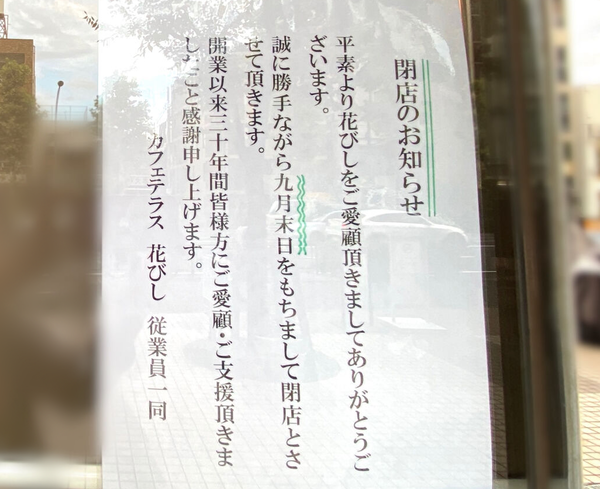 閉店のお知らせ
平素より花びしをご愛顧頂きましてありがとうご
ざいます。
誠に勝手ながら九月末日をもちまして閉店とさ
せて頂きます。
開業以来三十年間皆様方にご愛顧・ご支援頂きま
したこと感謝申し上げます。
カフェテラス 花びし 従業員一同